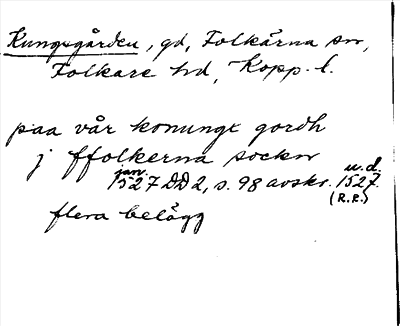 Kungsgården, gd, Folkärna sn,
Folkare hd, Kopp. l.
paa vår konungx gordh
j ffolkerna sockn
jan. 1527 DD 2, s. 98 avskr. u.d. 1527.
(R.R.)
flera belägg